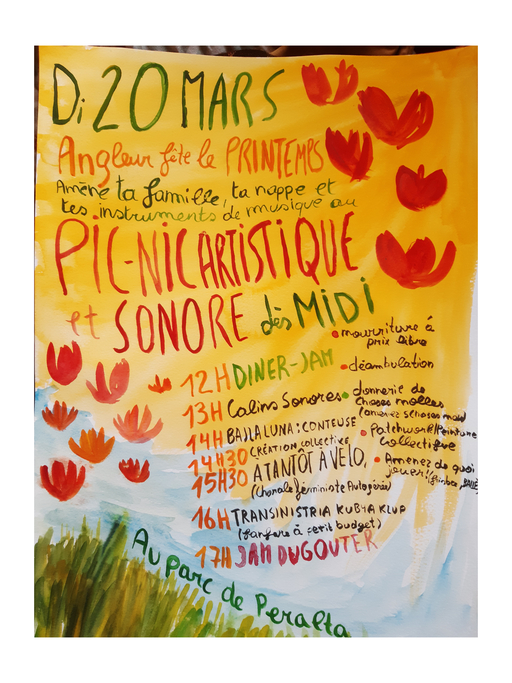 Di 20 MARS
Angleur fête le PRINTEMPS
Amène ta famille, ta nappe et
tes instruments de musique au
PIC-NIC ARTISTIQUE
et SONORE dès MIDI
• nourriture à
prix libre
12H DINER-JAM
• déambulation
13H Calins Sonores
• donnerie de
choses molles
14H BAJLALUNA: CONTEUSE
• Patchwork/Peinture
collective
14H30 CRÉATION COLLECTIVE
15H30 A TANTÔT À VELO,
(Chorale féministe Autogérée)
• Amenez de quoi
jouer!
16H TRANSINISTRIA KUBHA KLUP
(fanfare à petit budget)
17H JAM DU GOUTER
Au parc de Peralta